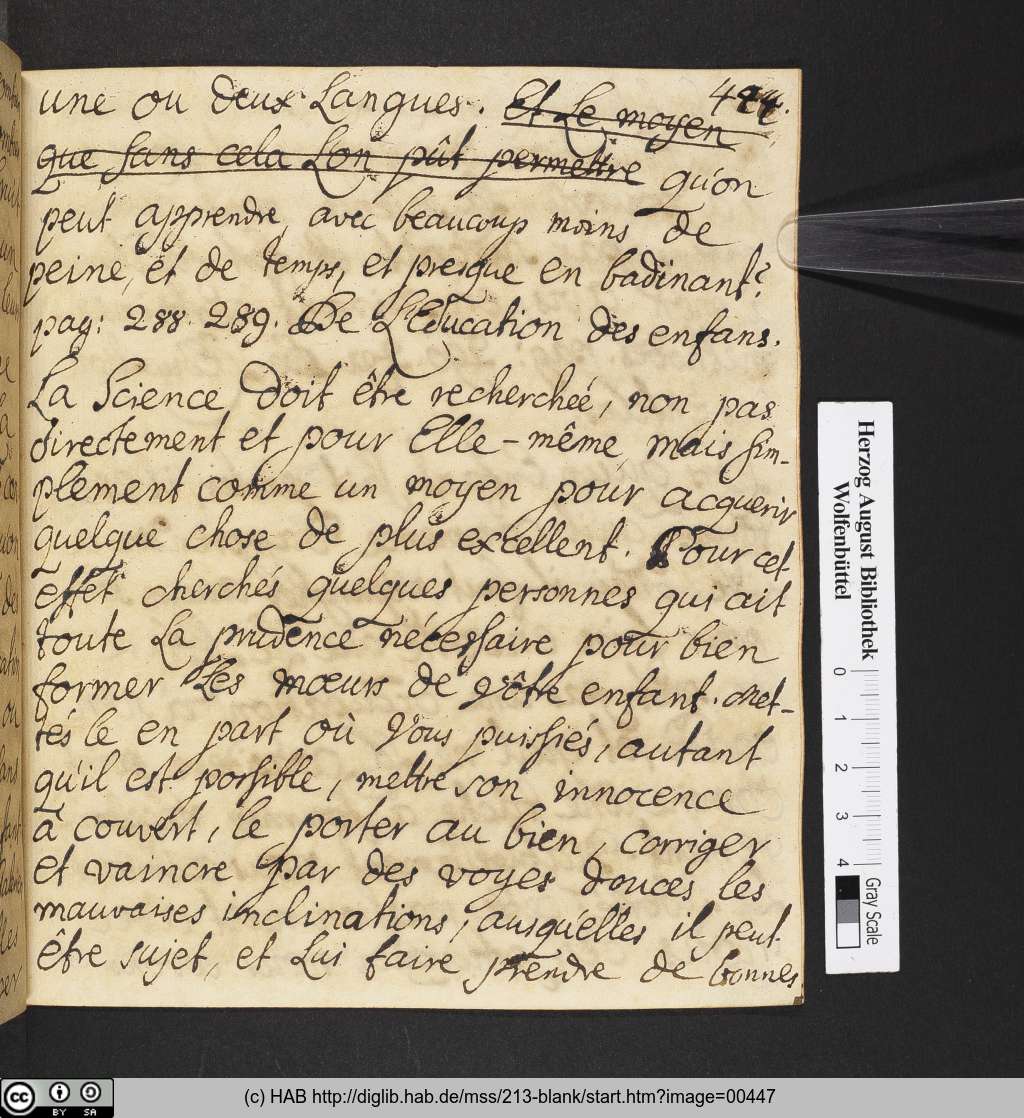 444.
une ou deux Langues. Et Le moyen
que sans cela Lon pût permettre qu'on
peut apprendre, avec beaucoup moins de
peine, et de temps, et presque en badinant?
pag: 288. 289. De L'Education des enfans.
La Science doit être recherchée, non pas
directement et pour Elle-même, mais sim-
plement comme un moyen pour acquerir
quelque chose de plus excellent. Pour cet
effet cherchés quelques personnes qui ait
toute La prudence nécessaire pour bien
former Les mœurs de vôtre enfant. Met-
tés le en part où Vous puissiés, autant
qu'il est possible, mettre son innocence
à couvert, le porter au bien, corriger
et vaincre par des voyes douces les
mauvaises inclinations, ausquelles il peut
être sujet, et Lui faire prendre de bonnes
Herzog August Bibliothek
Wolfenbüttel
0 1 2 3 4
Gray Scale
CC BY SA
(c) HAB http://diglib.hab.de/mss/213-blank/start.htm?image=00447